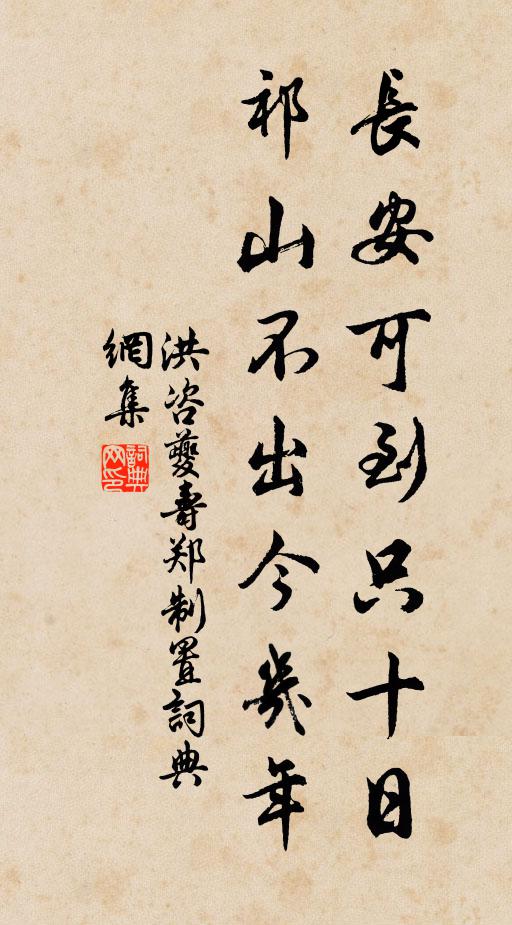 長安可到只十日
祁山不出今幾年
洪咨夔壽郑制置詞典
網集
詞典
网印